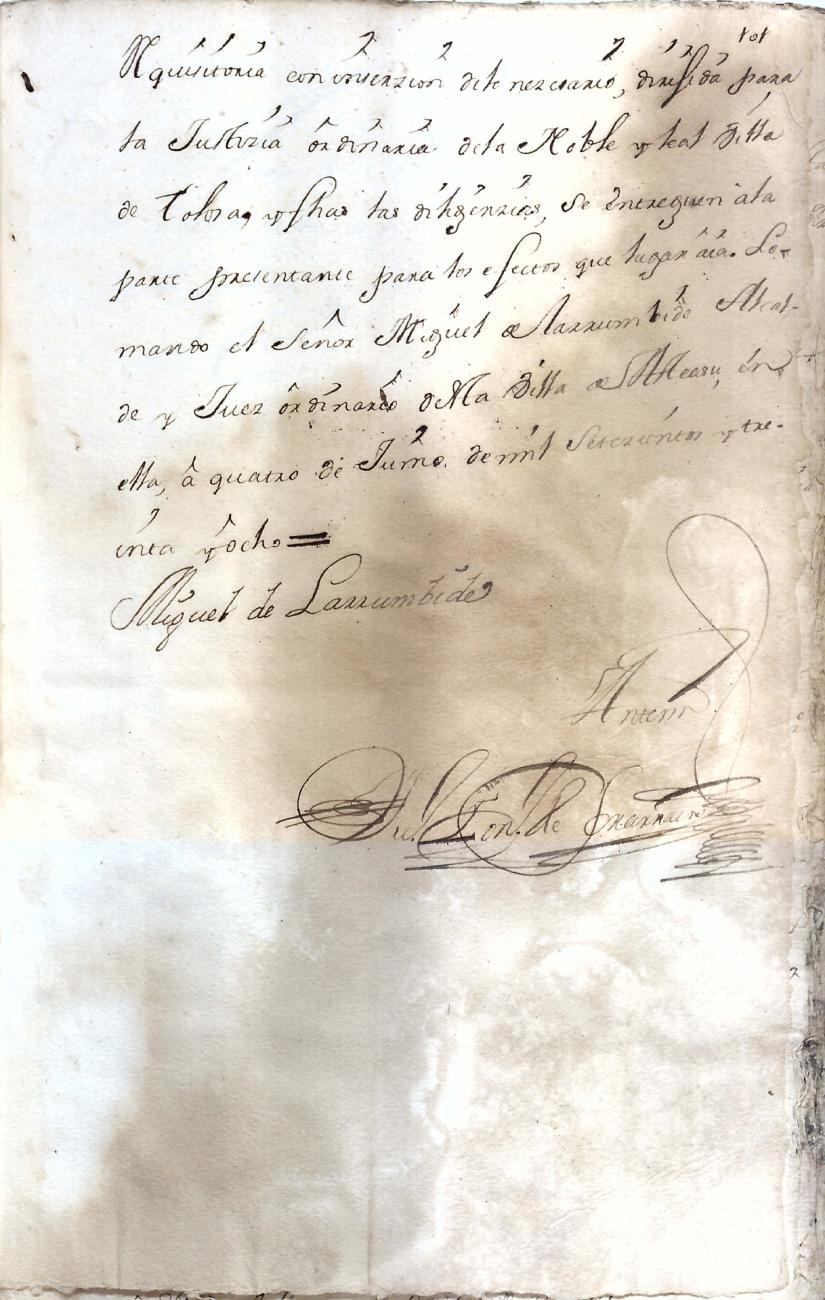 101
Rquisitoria con inserzion delo nezesario, dirijida para
la Justizia ordinaria dela Noble y Leal Villa
de Tolosa, y fhas las dilijenzias, se entreguen ala
parte presentante para los efectos que lugar aia. Lo
mando el Señor Miguel de Larrumbide Alcal-
de y Juez ordinario de la Villa de Alleasu, en
ella, â quatro de Junio de mil setezientos y tre-
inta y ocho =
Miguel de Larrumbide
Antemi
de